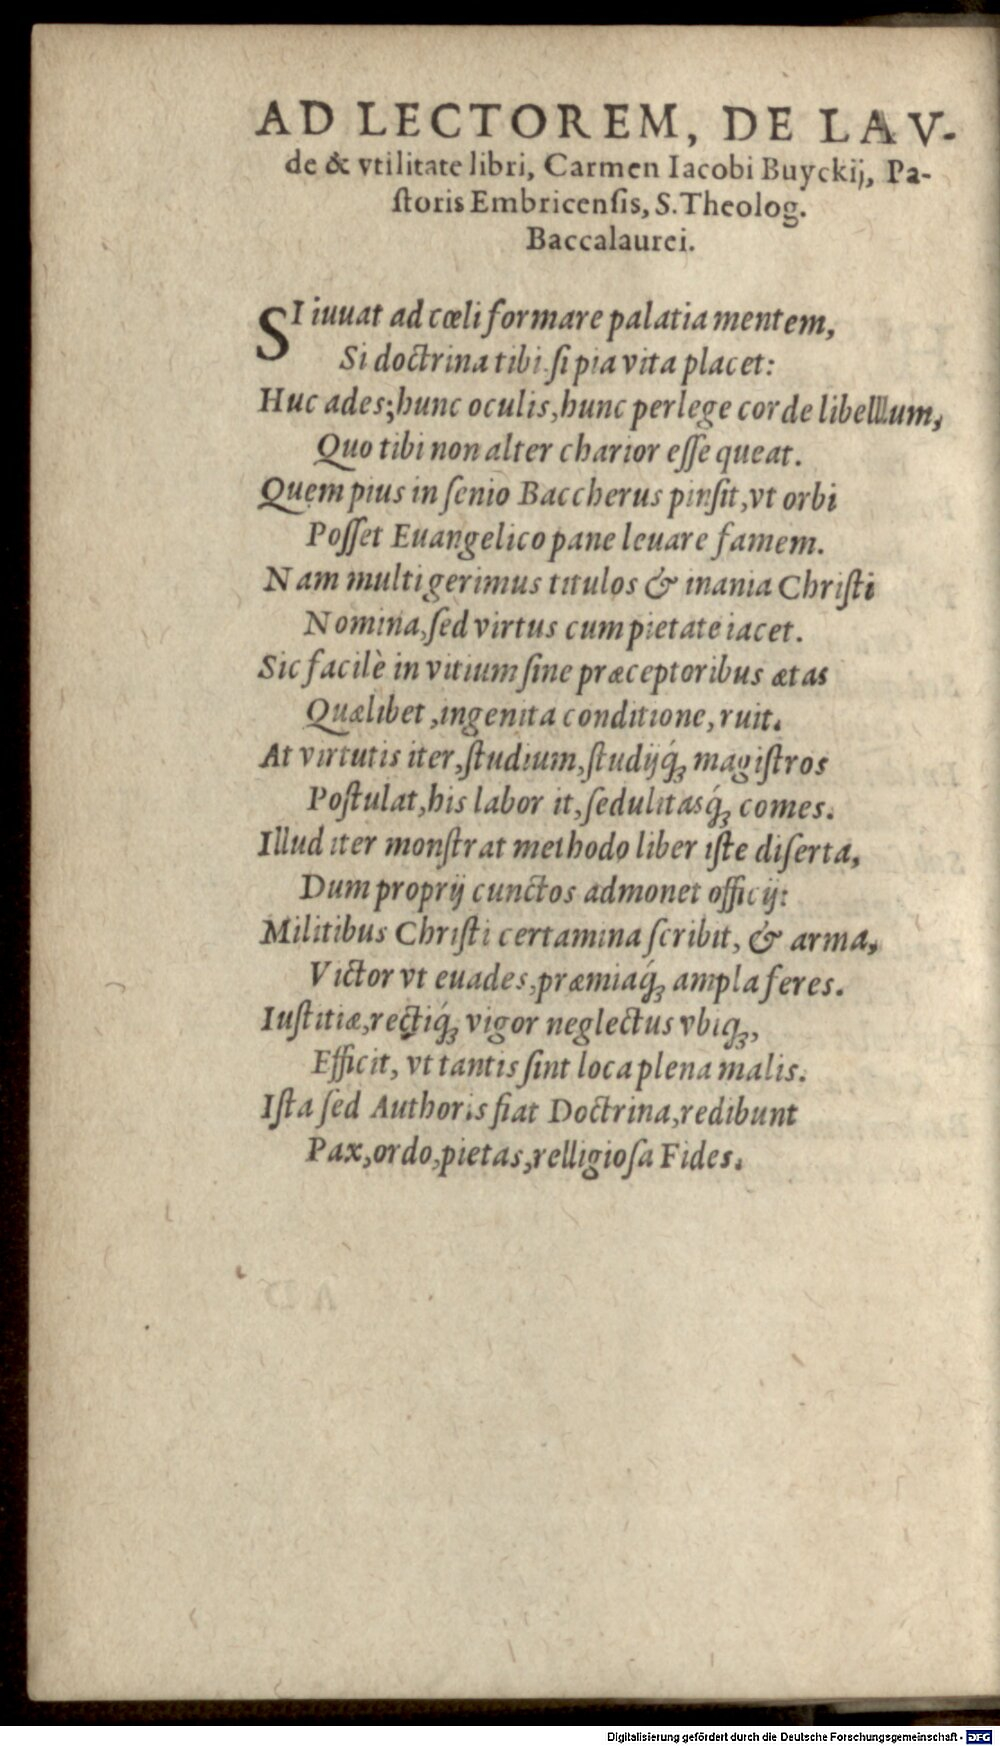 AD LECTOREM, DE LAV-
de & vtilitate libri, Carmen Iacobi Buyckij, Pa-
ſtoris Embricenſis, S. Theolog.
Baccalaurei.
SI iuuat ad cœli formare palatia mentem,
Si doctrina tibi ſi pia vita placet:
Huc ades; hunc oculis, hunc perlege corde libelllum,
Quo tibi non alter charior eſſe queat.
Quem pius in ſenio Baccherus pinſit, vt orbi
Poſſet Euangelico pane leuare famem.
Nam multi gerimus titulos & inania Chriſti
Nomina, ſed virtus cum pietate iacet.
Sic facilè in vitium ſine præceptoribus ætas
Quælibet, ingenita conditione, ruit.
At virtutis iter, ſtudium, ſtudijq́ꝫ magiſtros
Poſtulat, his labor it, ſedulitasq́ꝫ comes.
Illud iter monſtrat methodo liber iſte diſerta,
Dum proprij cunctos admonet officij:
Militibus Chriſti certamina ſcribit, & arma,
Victor vt euades, præmiaq́ꝫ ampla feres.
Iuſtitiæ, rectiq́ꝫ vigor neglectus vbiqꝫ,
Efficit, vt tantis ſint loca plena malis.
Iſta ſed Authoris fiat Doctrina, redibunt
Pax, ordo, pietas, relligioſa Fides.
Digitalisierung gefördert durch die Deutsche Forschungsgemeinschaft - DFG